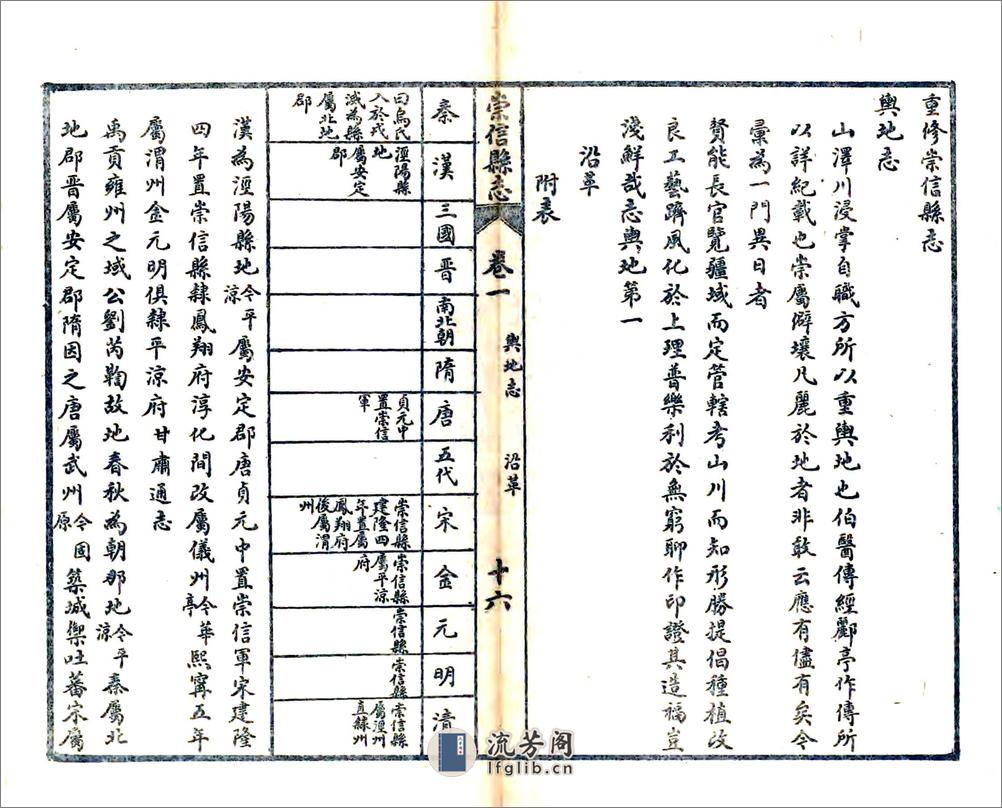 重修崇信縣志
輿地志
山澤川浸掌自職方所以重輿地也伯醫傳經酈亭作傳所
以詳紀載也崇屬僻壤凡麗於地者非敢云應有儘有矣今
彙為一門異日者
賢能長官覽疆域而定管轄考山川而知形勝提倡種植改
良工藝躋風化於上理普樂利於無窮聊作印證其造福豈
淺鮮哉志輿地第一
沿革
附表
崇信縣志
卷一
輿地志
沿革
十六
秦
曰烏氏
入於戎地
滅為縣
屬北地
郡
漢
涇陽縣
地
屬安定
郡
三國
晋
南北朝
隋
唐
貞元中
置崇信
軍
五代
宋
崇信縣
建隆四
年置屬
鳳翔府
後屬渭
州
金
崇信縣
屬平涼
府
元
崇信縣
明
崇信縣
清
崇信縣
屬涇州
直隸州
漢為涇陽縣地今平涼屬安定郡唐貞元中置崇信軍宋建隆
四年置崇信縣隸鳳翔府淳化間改屬儀州今華亭熙寗五年
屬渭州金元明俱隸平涼府甘肅通志
禹貢雍州之域公劉芮鞫故地春秋為朝那地今平涼秦屬北
地郡晋屬安定郡隋因之唐屬武州今固原築城禦吐蕃宋屬
流芳阁
lfglib.cn